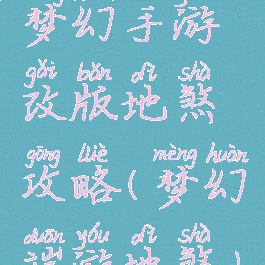 梦幻手游
gǎi bǎn dì shà
改版地煞
gōng lüè mèng huàn
攻略(梦幻
duān yóu dì shà
端游地煞)